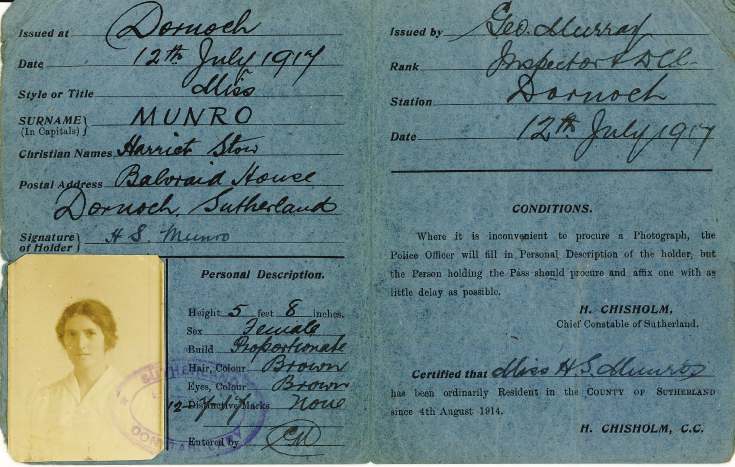 Issued at Dornoch
Date 12th July 1917
Style or Title Miss
SURNAME MUNRO
(In Capitals)
Christian Names Harriet Stow
Postal Address Balvraid House
Dornoch, Sutherland
Signature of Holder H S. Munro
Personal Description.
Height 5 feet 8 inches.
Sex Female
Build Proportionate
Hair, Colour Brown
Eyes, Colour Brown
Distinctive Marks None
12-7-17
Entered by
SUTHERLAND
CONSTABULARY
Issued by Geo. Murray
Rank Inspector & D.C.C.
Station Dornoch
Date 12th July 1917
CONDITIONS.
Where it is inconvenient to procure a Photograph, the
Police Officer will fill in Personal Description of the holder, but
the Person holding the Pass should procure and affix one with as
little delay as possible.
H. CHISHOLM,
Chief Constable of Sutherland.
Certified that Miss H. S. Munro
has been ordinarily Resident in the COUNTY OF SUTHERLAND
since 4th August 1914.
H. CHISHOLM, C.C.